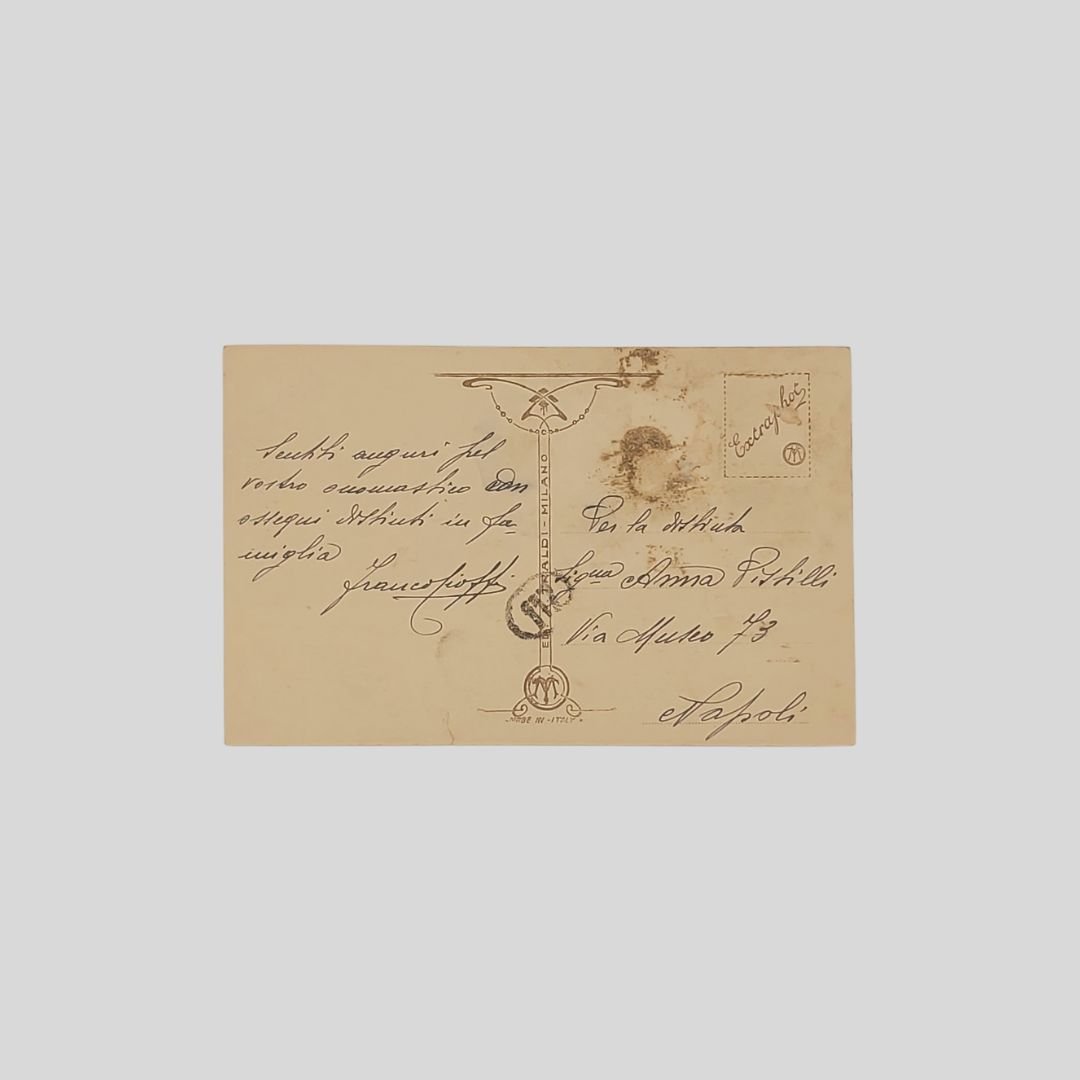 Sentiti auguri pel
vostro onomastico con
ossequi distinti in fa-
miglia
Franco Cioffi
MILANO
MADE IN ITALY
Extraphot
M
Per la distinta
Sig.na Anna Pistilli
Via Museo 73
Napoli